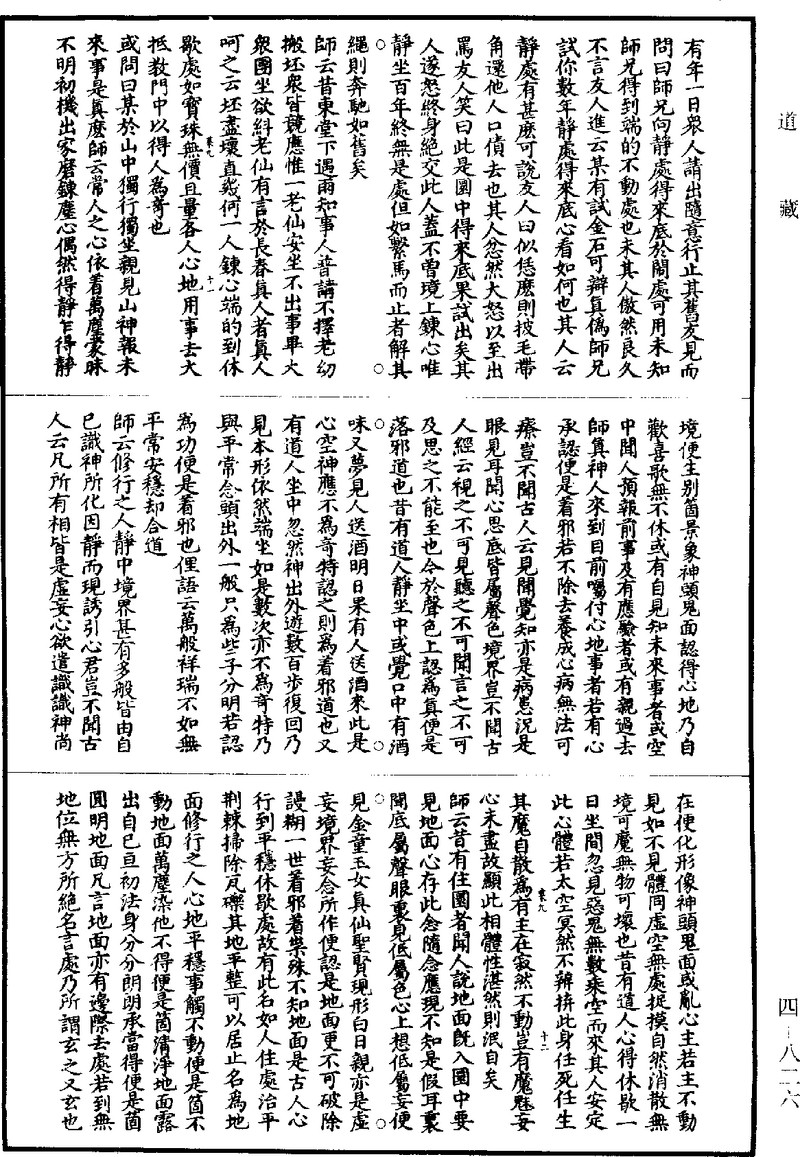 道藏
有年一日衆人請出隨意行止其舊友見而
問曰師兄向靜處得來底於閙處可用未知
師兄得到端的不動處也未其人傲然良久
不言友人進云某有試金石可辯真偽師兄
試你數年靜處得來底心看如何也其人云
靜處有甚麽可說友人曰似恁麽則披毛帶
角還他人口債去也其人忿然大怒以至出
罵友人笑曰此是圜中得來底果試出矣其
人遂怒終身絕交此人蓋不曽境上鍊心唯
靜坐百年終無是處但如繫馬而止者解其
繩則奔馳如舊矣
師云昔東堂下遇雨知事人普請不擇老幼
搬坯衆皆競應惟一老仙安坐不出事畢大
衆團坐欲糾老仙有言於長春真人者真人
呵之云坯盡壞直幾何一人鍊心端的到休
歇處如寳珠無價且量各人心地用事去大
抵教門中以得人為竒也
或問曰某於山中獨行獨坐親見山神報未
來事是真麽師云常人之心依着萬塵䝉昧
不明初機出家磨鍊塵心偶然得靜乍得靜
境便生别箇景象神頭鬼面認得心地乃自
歡喜歌無不休或有自見知未來事者或空
中聞人預報前事及有應驗者或有親過去
師真神人來到目前囑付心地事者若有心
承認便是着邪若不除去養成心病無法可
療豈不聞古人云見聞覺知亦是病患況是
眼見耳聞心思底皆屬聲色境界豈不聞古
人經云視之不可見聽之不可聞言之不可
及思之不能至也今於聲色上認為真便是
落邪道也昔有道人靜坐中或覺口中有酒
味又夢見人送酒明日果有人送酒來此是
心空神應不為竒特認之則為着邪道也又
有道人坐中忽然神出外遊數百步復回乃
見本形依然端坐如是數次亦不為竒特乃
與平常念頭出外一般只為些子分明若認
為功便是着邪也俚語云萬般祥瑞不如無
平常安穩却合道
師云修行之人靜中境界甚有多般皆由自
己識神所化因靜而現誘引心君豈不聞古
人云凡所有相皆是虚妄心欲遣識識神尚
在便化形像神頭鬼面或亂心主若主不動
見如不見體同虚空無處捉摸自然消散無
境可魔無物可壞也昔有道人心得休歇一
日坐間忽見惡鬼無數乘空而來其人安定
此心體若太空冥然不辨拚此身任死任生
其魔自散為有主在寂然不動豈有魔魅妄
心未盡故顯此相體性湛然則泯自矣
師云昔有住圜者聞人說地面旣入圜中要
見地面心存此念隨念應現不知是假耳裏
聞底屬聲眼裏見底屬色心上想底屬妄便
見金童玉女真仙聖賢現形白日親亦是虚
妄境界妄念所作便認是地面更不可破除
謾糊一世着邪著崇殊不知地面是古人心
行到平穩休歇處故有此名如人住處治平
荆棘掃除瓦礫其地平整可以居止名為地
面修行之人心地平穩事觸不動便是箇不
動地面萬塵染他不得便是箇清淨地面露
出自己亘初法身分分朗朗承當得便是箇
圓明地面凡言地面亦有邊際去處若到無
地位無方所絕名言處乃所謂玄之又玄也
叅九 十一
叅九 十二
四-八二六